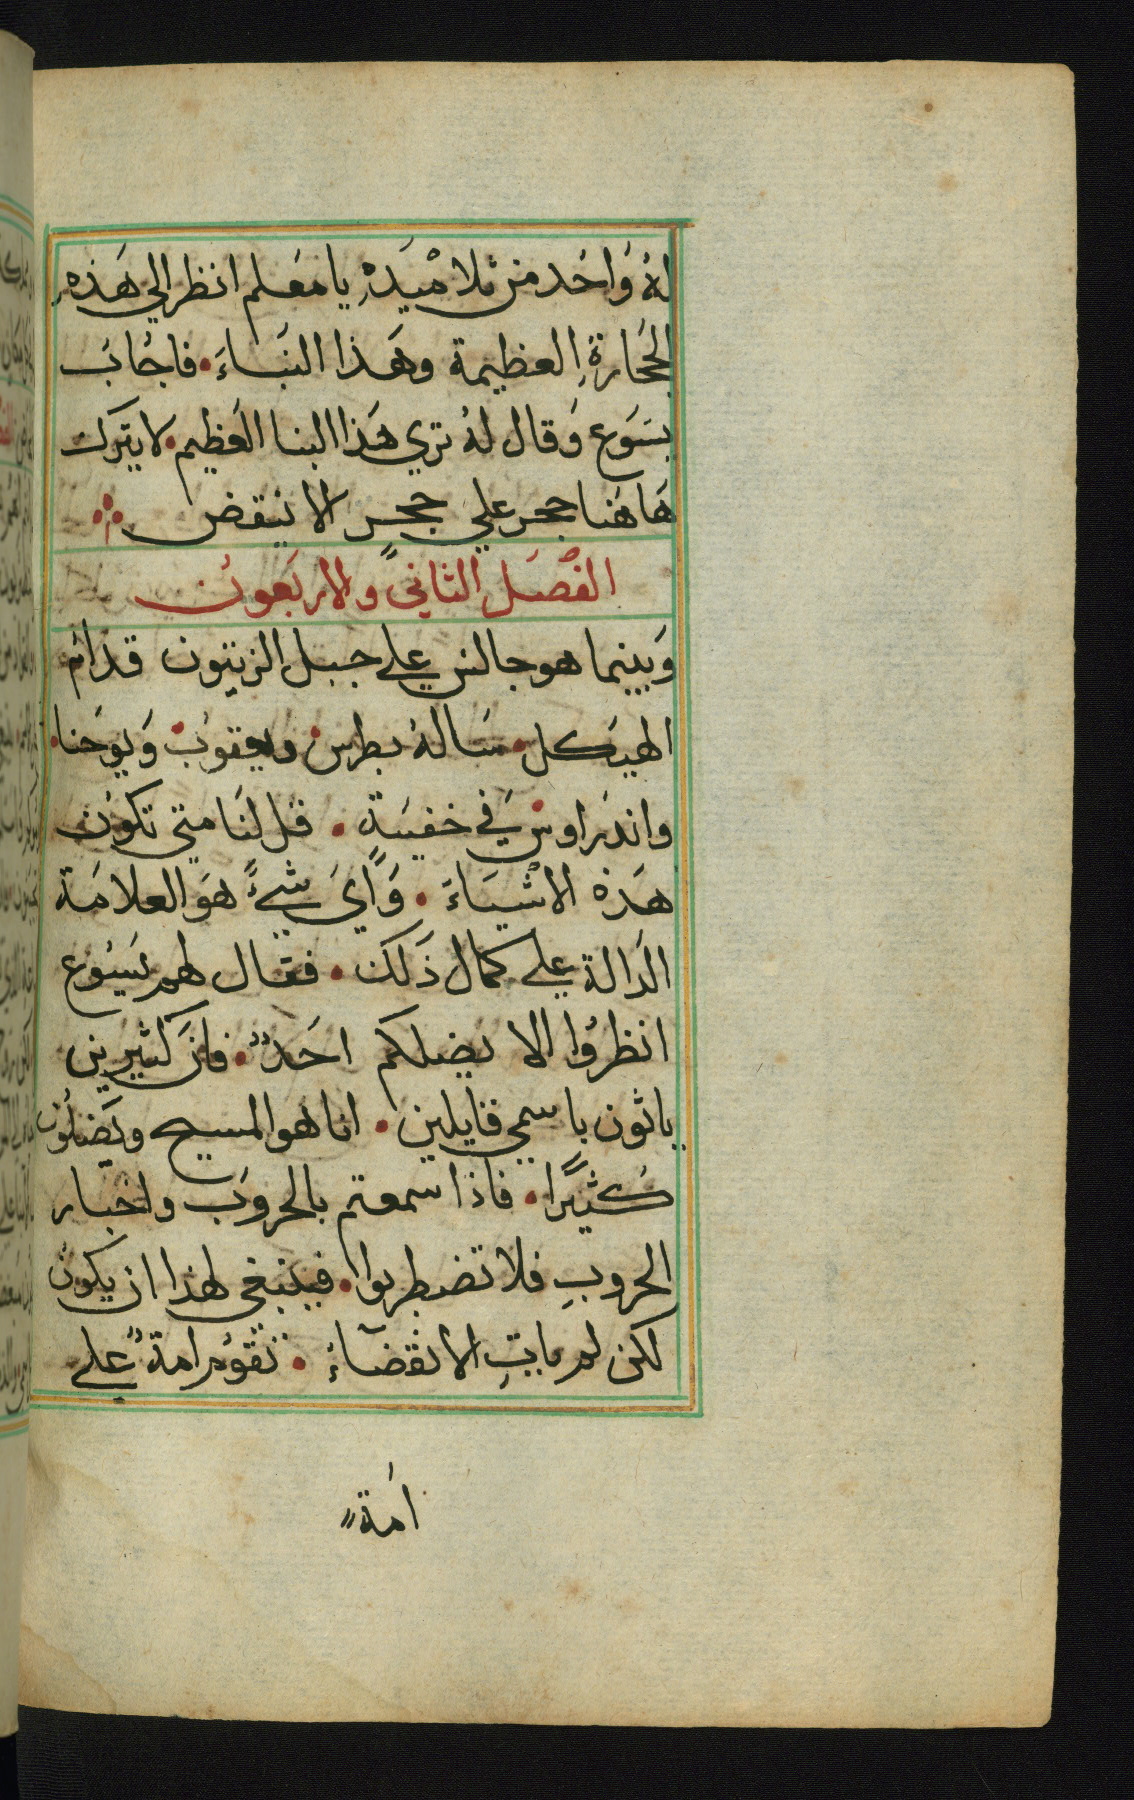 له وَاحَد من تلاميَدْهِ يا معَلم انظر الي هَذهِ
الحجَارةِ العظيمة وهَذا البنَاءَ • فاجَابَ
يسَوع وَقال لهُ تري هَذا البنا العَظيم • لا يترك
هَاهَنا حجر علي حجرٍ الا ينقض
الفْصَل الثاني والاربَعوُن
وَبينما هو جالس علے جبل الزيتون قدام
الهيَكل • سَالهُ بطرس ويعقوبَ وَيوحَنا •
واندَراوس فَي خفيَة • قل لنَا متي تكوُن
هَذه الاشيَاءَ • وَاَيَ شيءً هَوَ العلامَة
الدَالة علے كمال ذَلَك • فقال لهم يَسَوُع
انظروُا الا يضلكم احَدٌ • فانَ كثيرين
ياتون باسمي قايلين • انا هو المسيح ويَضلوُن
كَثيرًا • فاذا سمعتم بالحروَب واخبار
الحروبِ فلا تضطربوا • فينبغي لهذا ان يكون
لكن لم ياتِ الانقضآءُ • تقوُم امةٌ علے
امَة